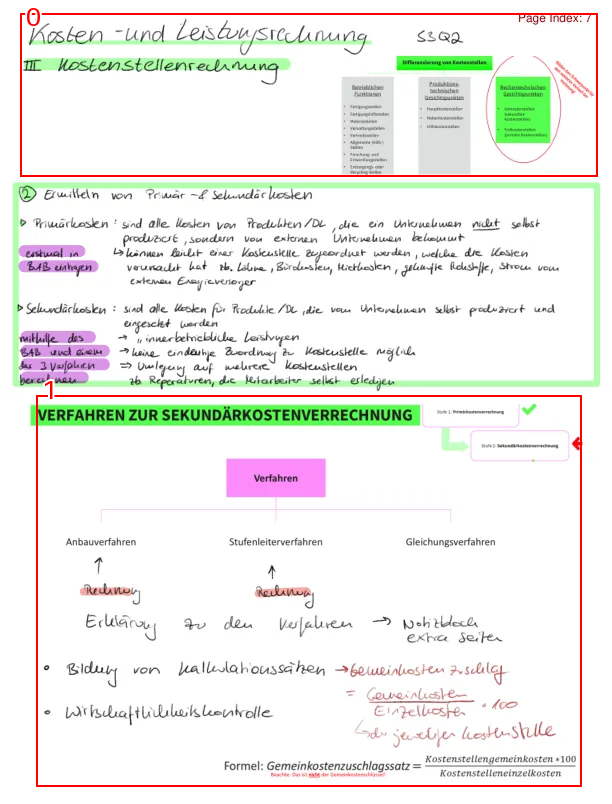 0
Page Index: 7
Kosten- und Leistungsrechnung S3Q2
III Kostenstellenrechnung
Differenzierung von Kostenstellen
Betrieblichen Funktionen
• Fertigungsstellen
• Fertigungshilfsstellen
• Materialstellen
• Verwaltungsstellen
• Vertriebsstellen
• Allgemeine (Hilfs-) Stellen
• Forschung- und Entwicklungsstellen
• Entsorgungs- oder Recycling-Stellen
Produktions-technischen Gesichtspunkten
• Hauptkostenstellen
• Nebenkostenstellen
• Hilfskostenstellen
Rechentechnischen Gesichtspunkten
• Vorkostenstellen (sekundäre Kostenstellen)
• Endkostenstellen (primäre Kostenstellen)
② Ermitteln von Primär- & Sekundärkosten
▷ Primärkosten: sind alle Kosten von Produkten/DL, die ein Unternehmen nicht selbst
produziert, sondern von externen Unternehmen bekommt
erstmal in ↳ können leicht einer Kostenstelle zugeordnet werden, welche die Kosten
BAB eintragen verursacht hat zb. Löhne, Bürokosten, Mietkosten, gekaufte Rohstoffe, Strom vom
externen Energieversorger
▷ Sekundärkosten: sind alle Kosten für Produkte/DL, die vom Unternehmen selbst produziert und
eingesetzt werden
mithilfe des → „innerbetriebliche Leistungen
BAB und einem → keine eindeutige Zuordnung zu Kostenstelle möglich
der 3 Verfahren ⇒ Umlegung auf mehrere Kostenstellen
berechnen zb. Reperaturen, die Mitarbeiter selbst erledigen
1
VERFAHREN ZUR SEKUNDÄRKOSTENVERRECHNUNG
Stufe 1: Primärkostenverrechnung
Stufe 2: Sekundärkostenverrechnung
Verfahren
Anbauverfahren Stufenleiterverfahren Gleichungsverfahren
↑ ↑
Rechnung Rechnung
Erklärung zu den Verfahren → Notizblock
extra Seiten
• Bildung von Kalkulationssätzen → Gemeinkostenzuschlag
= Gemeinkosten / Einzelkosten • 100
• Wirtschaftlichkeitskontrolle
↳ der jeweiligen Kostenstelle
Formel: Gemeinkostenzuschlagssatz = Kostenstellengemeinkosten *100 / Kostenstelleneinzelkosten
Beachte: Das ist nicht der Gemeinkostenschlüssel!